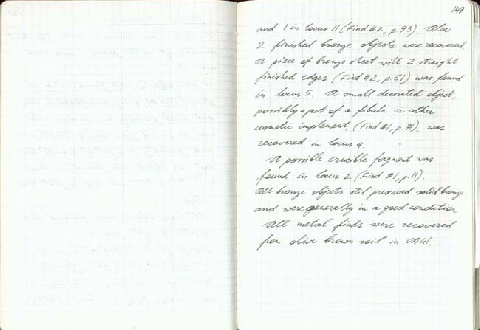 149
and 1 in locus 11 (Find #2, p. 93). Also
2 finished bronze objects were recovered.
A piece of bronze sheet with 2 straight
finished edges (Find #2, p. 51) was found
in locus 5. A small decorated object,
possibly a part of a fibula or other
cosmetic implement, (Find #1, p. ), was
recovered in locus 4.
A possible crucible fragment was
found in locus 2 (Find #1, p. 11).
All bronze objects still preserved solid bronze
and were generally in a good condition.
All metal finds were recovered
from olive brown soil in